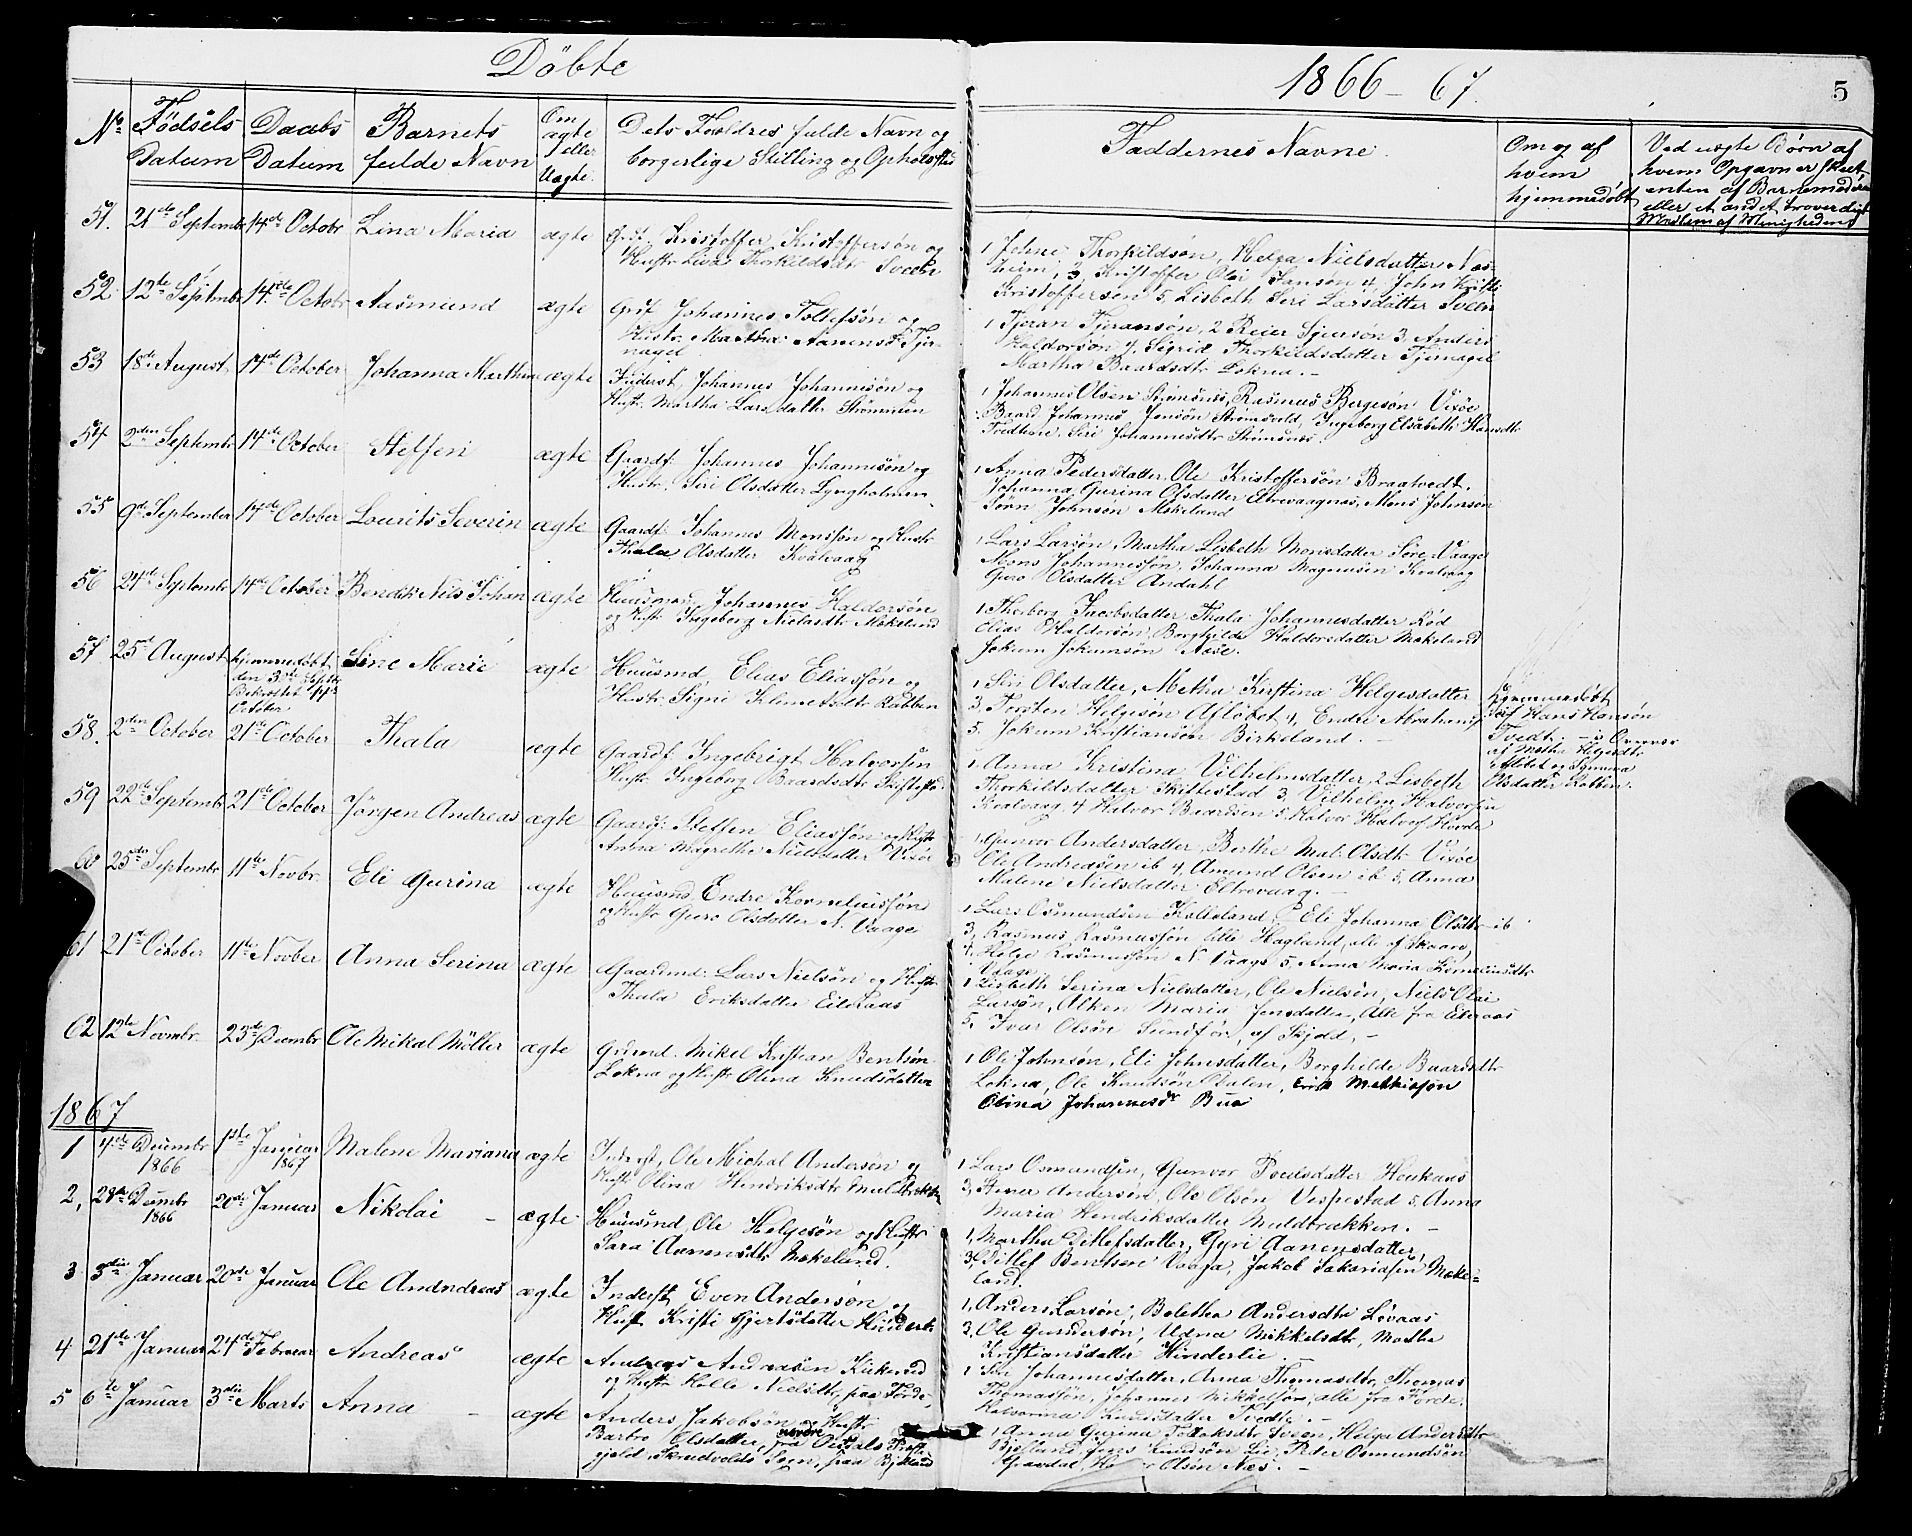 Döbte
1866-67.
5
No
Födsels Datum
Daabs Datum
Barnets fulde Navn
Om ægte eller Uægte.
Dets Foældres fulde Navn og
borgerlige Stilling og Opholdssted
Faddernes Navne.
Om og af
hvem
hjemmedöbt
Ved uægte Börn af
hvem Opgaven er skeet
enten af Barnemoderen
eller et andet troverdigt
Medlem af Menigheden
51. 21de Septembr 14de Octobr Lina Maria ægte
Grdf Kristoffer Kristoffersøn og
Hustr Lisa Thorkildsdtr Sveen
1 Johne Thorkildsøn, Helga Nielsdatter Næs-
heim, 3 Kristoffer Olai Jansøn 4, John
Kristoffersen 5 Lisbeth Seri Larsdatter Sveen
52. 12te Septmbr 14de Octobr Aasmund ægte
Grdf Johannes Tollefsøn og
Hustr. Martha Aanensd Tjer-
nagel
1 Tjeran Tjeransøn, 2 Reier Sjursøn 3 Anders
Haldorsøn 4, Sigrid Thorkildsdatter Tjernagel
Martha Baardsdtr Lokna. -
53 18de August 14de October Johanna Marthine ægte
Inderst, Johannes Johannisøn og
Hustr. Martha Larsdatter Strømmen
1 Johannes Olsen Strømsnes, Rasmus Bergesøn Vixöe
Baard Johannes Jonsøn Strømsvold, Ingeborg Elsabeth Hansdtr
Tvedtene, Siri Johannesdtr Strømsnes
54 2den Septembr 14de October Steffen ægte
Gaardf: Johannes Johannisøn og
Hustr. Siri Olsdatter Lyngholmen
1 Anna Pedersdatter, Ole Kristoffersøn Braatvedt,
Johanna Gurina Olsdatter Eltrevaagnes, Mons Johnsøn
Sørn Johnsøn Møkeland
55 9de September 14de October Lourits Severin ægte
Gaardf: Johannes Monssøn og Hustr
Thala Olsdatter Kvalvaag
1 Lars Larsøn, Martha Lisbeth Monsdatter Søre Vaage
Mons Johannessøn, Johanna Magnusen Kvalvaag
Guro Olsdatter Andahl
56 24de Septembr 14de October Bendik Nils Johan ægte
Huusmd, Johannes Haldorsøn
og Hustr Ingeborg Nielsdtr Mökeland
1. Therborg Jacobsdatter, Thala Johannesdatter Röd
Elias Haldorsøn, Borghilde Haldorsdatter Møkeland
Jokum Jokumsøn Næse.
57 25de August hjemmedøbt
den 3die Septbr
Bekræftet
October
Sine Marie ægte
Huusmd, Elias Eliassøn og
Hustr Signi Klemetsdtr Rabben
1 Siri Olsdatter, Metha Kirstina Helgesdatter
3. Torsten Helgesøn Afløbet 4, Endre Abrahams
5. Jokum Kristiansøn Birkeland. -
hjemmedöbt
af Hans Hansøn
Tvedt.
af Metha Helgesdtr
Aflöbet og
Olsdatter Rabben.
58. 2den October 21de October Thala ægte
Gaardf: Ingebrigt Halvorsen
Hustr Ingeborg Baardsdtr
1, Anna Kristina Vilhelmsdatter, 2 Lisbeth
Thorkildsdatter Skittestad 3, Vilhelm Halvorsen
Kvalvaag, 4 Halvor Baardsen 5, Halvor Halvors Hovde
59 22de Septembr 21de October Jörgen Andreas ægte
Gaardf: Steffen Eliassøn og Hustr
Anna Magrethe Nielsdatter Vixöe
1, Gunvor Andersdatter, Berthe Mal: Olsdtr Vixöe
Ole Andreasen ib 4, Amund Olsen ib 5, Anna
Malene Nielsdatter Eltrevaag. -
60 25de Septembr 11te Novbr. Eli Gurina ægte
Huusmd Endre Korneliussøn
og Hustr Guro Olsdatter N. Vaage
1 Lars Osmundsen Kolleland, 2 Eli Johanna Olsdtr ib
3, Rasmus Rasmussøn lille Hagland, alle af Skaare,
4, Helge Rasmussøn N. Vaage 5, Anna Maria
Vaage
61 21de October 11te Novber Anna Serina ægte
Gaardmd: Lars Nielsön og Hustr
Thala Eriksdatter Eileraas
1 Lisbeth Serina Nielsdatter, Ole Nielsön, Niels Olai
Larsøn, Alken Maria Jonsdatter, Alle fra Eileraas
5, Ivar Olsön Sundför, af Skjold, -
62 12te Novmbr. 23de Decembr Ole Mikal Möller ægte
Grdmd. Mikel Kristian Bentsön
Lokna og Hustr Olina Knudsdatter
1 Ole Johnsøn, Eli Johnsdatter, Borghilde Baardsdtr
Lokna, Ole Knudsön Dalen, Erik Mathiasøn
Olina Johannesdr Bua
1867
1 4de Decembr 1866 1ste Januar 1867 Malene Mariane ægte
Inderst, Ole Michal Andersøn og
Hustr Olina Hendriksdtr Muldbrækken
1 Lars Osmundsen, Gunvor Povelsdatter Houkaas
3, Stener Andersön, Ole Olsön Vespestad 5. Anna
Maria Hendriksdatter Muldbrækken. -
2, 28de Decembr 1866 20de Januar Nikolai - ægte
Huusmd, Ole Helgesøn og Hustr
Sara Aanensdtr Møkeland.
1, Martha Ditlefsdatter, Gyri Aanensdatter,
3, Ditlef Bentsen Vaaga, Jakob Sakariasen Møke-
land.
3 3die Januar 20de Januar Ole Andndreas ægte
Inderst, Even Andersøn og
Hust Kristi Gjertsdatter Hinderli
1, Anders Larsøn, Bolethea Andersdtr Lövaas
3. Ole Gundersøn, Udna Mikkelsdtr, Martha
Kristiansdatter Hinderlie. -
4 21de Januar 24de Februar Andreas ægte
Andreas Andreasen
og Hustr Nielsdtr, paa Förde,
1 Siri Johannesdatter, Anna Thomasdtr, Thomas
Thomassön, Johannes Mikkelsøn, alle fra Förde.
Halvorina Knudsdatter Tvedte. -
5 6te Januar 3die Marts Anna - ægte
Anders Jakobsøn og Hustr
Barbro Olsdatter, fra nordre Oisdals Præste-
gjeld, Skrudvolds Sogn, paa Bjelland
1 Anna Gurina Tollaksdtr Sveen, Helga Andersdtr
Bjelland, Jens Knudsøn Lie, Peder Osmundsøn
Gravdal, Olsön Næs. -